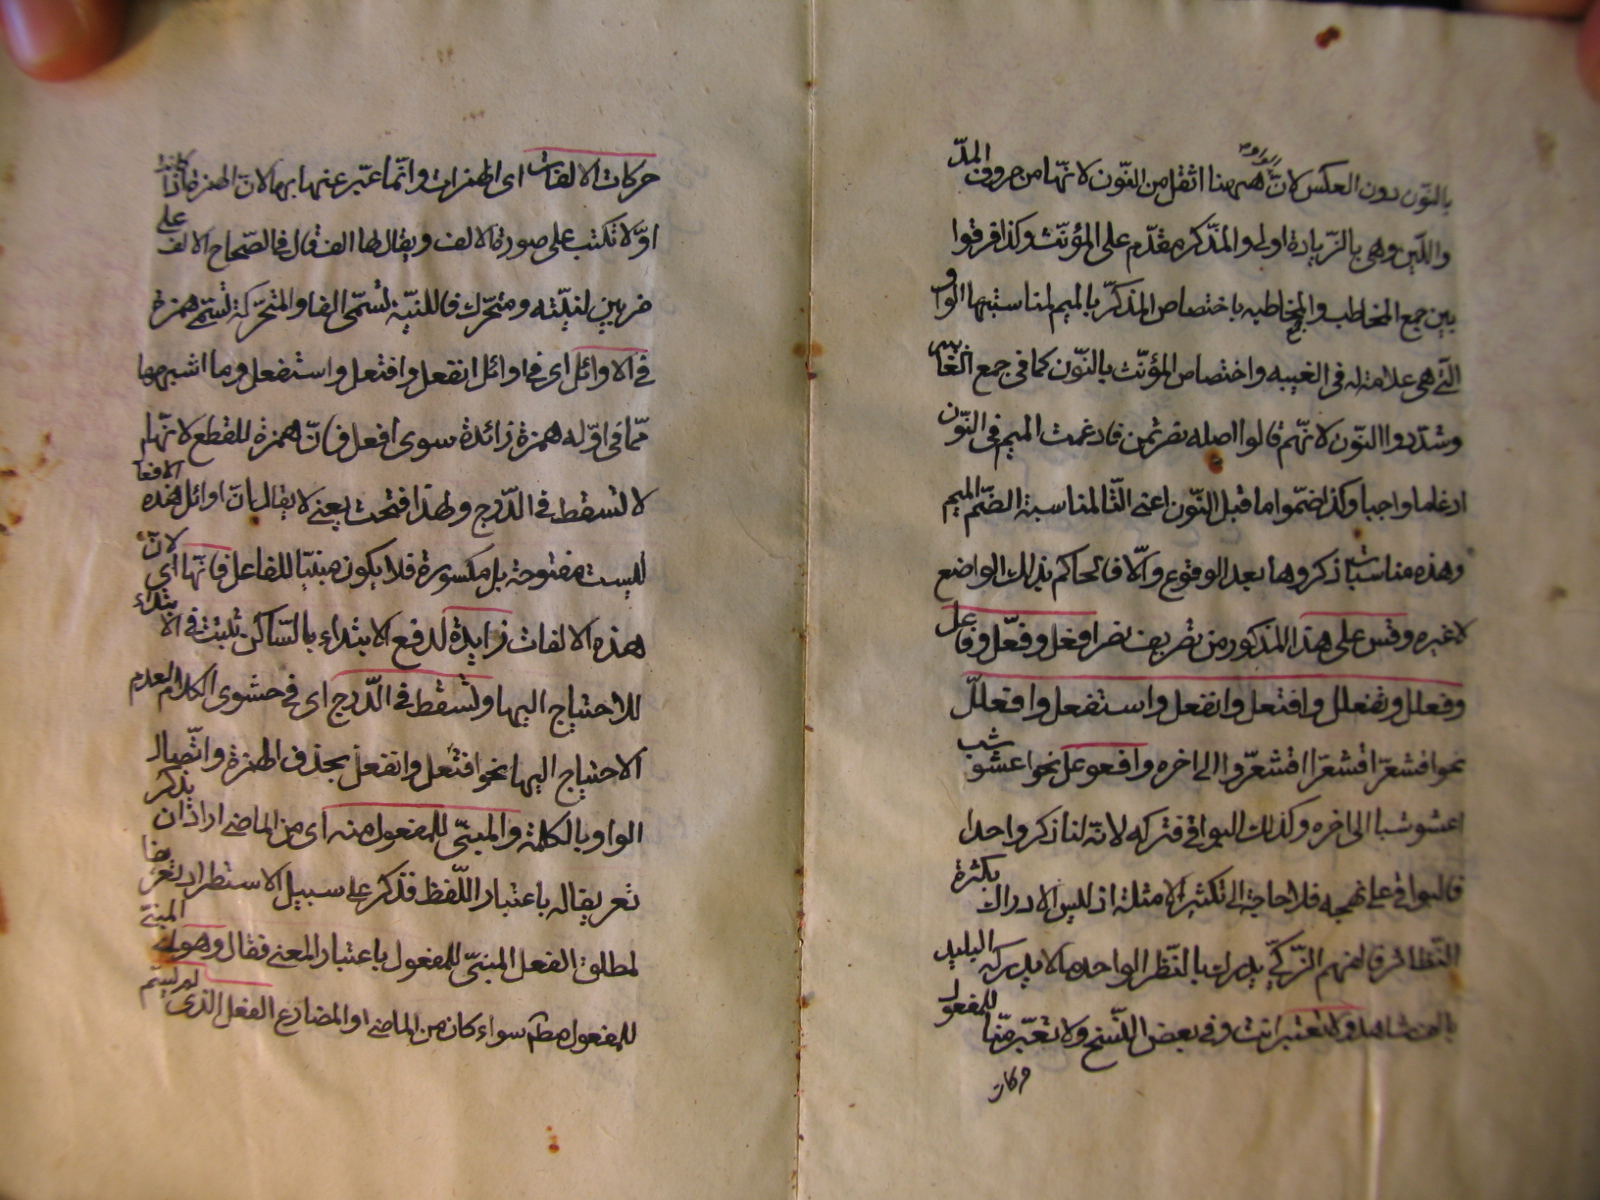 بالنّون دون العكس لانّ ههنا اثقل من النّون لانّها من حروف المدّ
واللّين وهى بالزّيادة اولى والمذّكر مقدّم على المؤنّث وكذا فرقوا
بين جمع المخاطب والمخاطبه باختصاص المذكّر بالميم لمناسبتها الواو
الّتى هى علامته فى الغيبه واختصاص المؤنّث بالنّون كما فى جمع الغائب
وشدّدوا النّون لانّهم قالوا اصله نصرتمن فادغمت الميم فى النّون
ادغاما واجبا وكذا ضمّوا ما قبل النّون اعنى التّا لمناسبة الضّم الميم
وهذه مناسبات ذكروها بعد الوقوع والّا فالحاكم بذلك الواضع
لا غيره وقس على هذا المذكور من تصريف نصر افعل وفعّل وفاعل
وفعلل وتفعلل وافتعل وانفعل واستفعل وافعللّ
نحو اقشعرّ اقشعرّا اقشعرّوا الى اخره وافعوعل نحو اعشوشب
اعشوشبا الى اخره وكذلك البواقى فتركه لانّه لمّا ذكر واحدا
فالبواقى على نهجه فلا حاجة الى تكثير الامثلة اذ ليس الادراك بكثرة
النّظائر فانهم الزّكىّ يدرك بالنّظر الواحد ما لا يدركه البليد
بالف شاهد ولا تعتبر انت وفى بعض النّسخ ولا تغيّر مبنّيا للمفعول
حركات
حركات الالفات اى الهمزات وانّما عبّر عنها بها لانّ الهمزة اذا كانت
اوّلا تكتب على صورة الالف ويقال لها الف قال فى الصّحاح الالف على
ضربين ليّنة ومتحرّك فاللّيّنة تسمّى الفا والمتحرّكة تسمّى همزة
فى الاوائل اى فى اوائل انفعل وافتعل واستفعل وما اشبهها
ممّا فى اوّله همزة زائدة سوى افعل فانّ همزة للقطع لانّها
لا تسقط فى الدّرج ولهذا فتحت يعنى لا يقال بانّ اوائل هذه الافعال
ليست مفتوحة بل مكسورة فلا يكون مبنيّا للفاعل فانّها اى لانّ
هذه الالفات زايدة لدفع الابتداء بالسّاكن تثبت فى الابتداء
للاحتياج اليها وتسقط فى الدّرج اى فى حشو الكلام لعدم
الاحتياج اليها نحو افتعل وانفعل بحذف الهمزة واتّصال
الواو بالكلمة والمبنىّ للمفعول منه اى من الماضى اراد ان يذكر
تعريفا له باعتبار اللّفظ فذكر على سبيل الاستطراد تعريفا
لمطلق الفعل المبنىّ للمفعول باعتبار المعنى فقال وهو اى المبنىّ
للمفعول مطلقا سواء كان من الماضى او المضارع الفعل الذى لم يسمّ